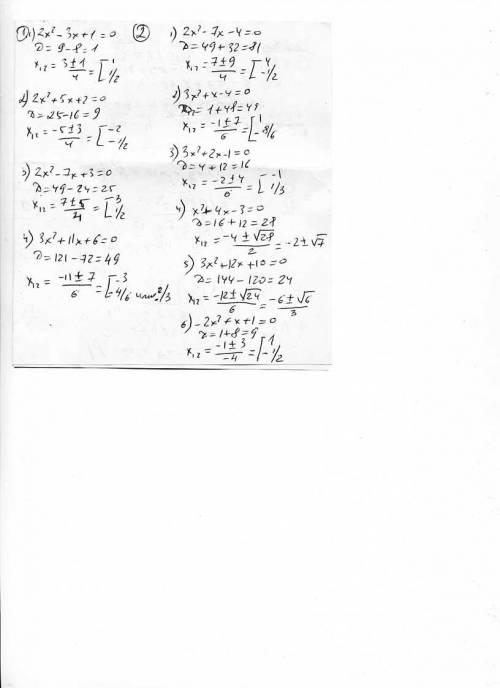 ① 1) 2x² - 3x + 1 = 0
D = 9 - 8 = 1
x₁₂ = (3 ± 1)/4 = [1; 1/2
2) 2x² + 5x + 2 = 0
D = 25 - 16 = 9
x₁₂ = (-5 ± 3)/4 = [-2; -1/2
3) 2x² - 7x + 3 = 0
D = 49 - 24 = 25
x₁₂ = (7 ± 5)/4 = [3; 1/2
4) 3x² + 11x + 6 = 0
D = 121 - 72 = 49
x₁₂ = (-11 ± 7)/6 = [-3; -4/6 или -2/3
② 1) 2x² - 7x - 4 = 0
D = 49 + 32 = 81
x₁₂ = (7 ± 9)/4 = [4; -1/2
2) 3x² + x - 4 = 0
D = 1 + 48 = 49
x₁₂ = (-1 ± 7)/6 = [1; -8/6
3) 3x² + 2x - 1 = 0
D = 4 + 12 = 16
x₁₂ = (-2 ± 4)/6 = [-1; 1/3
4) x² + 4x - 3 = 0
D = 16 + 12 = 28
x₁₂ = (-4 ± √28)/2 = -2 ± √7
5) 3x² + 12x + 10 = 0
D = 144 - 120 = 24
x₁₂ = (-12 ± √24)/6 = (-6 ± √6)/3
6) -2x² + x + 1 = 0
D = 1 + 8 = 9
x₁₂ = (-1 ± 3)/-4 = [1; -1/2